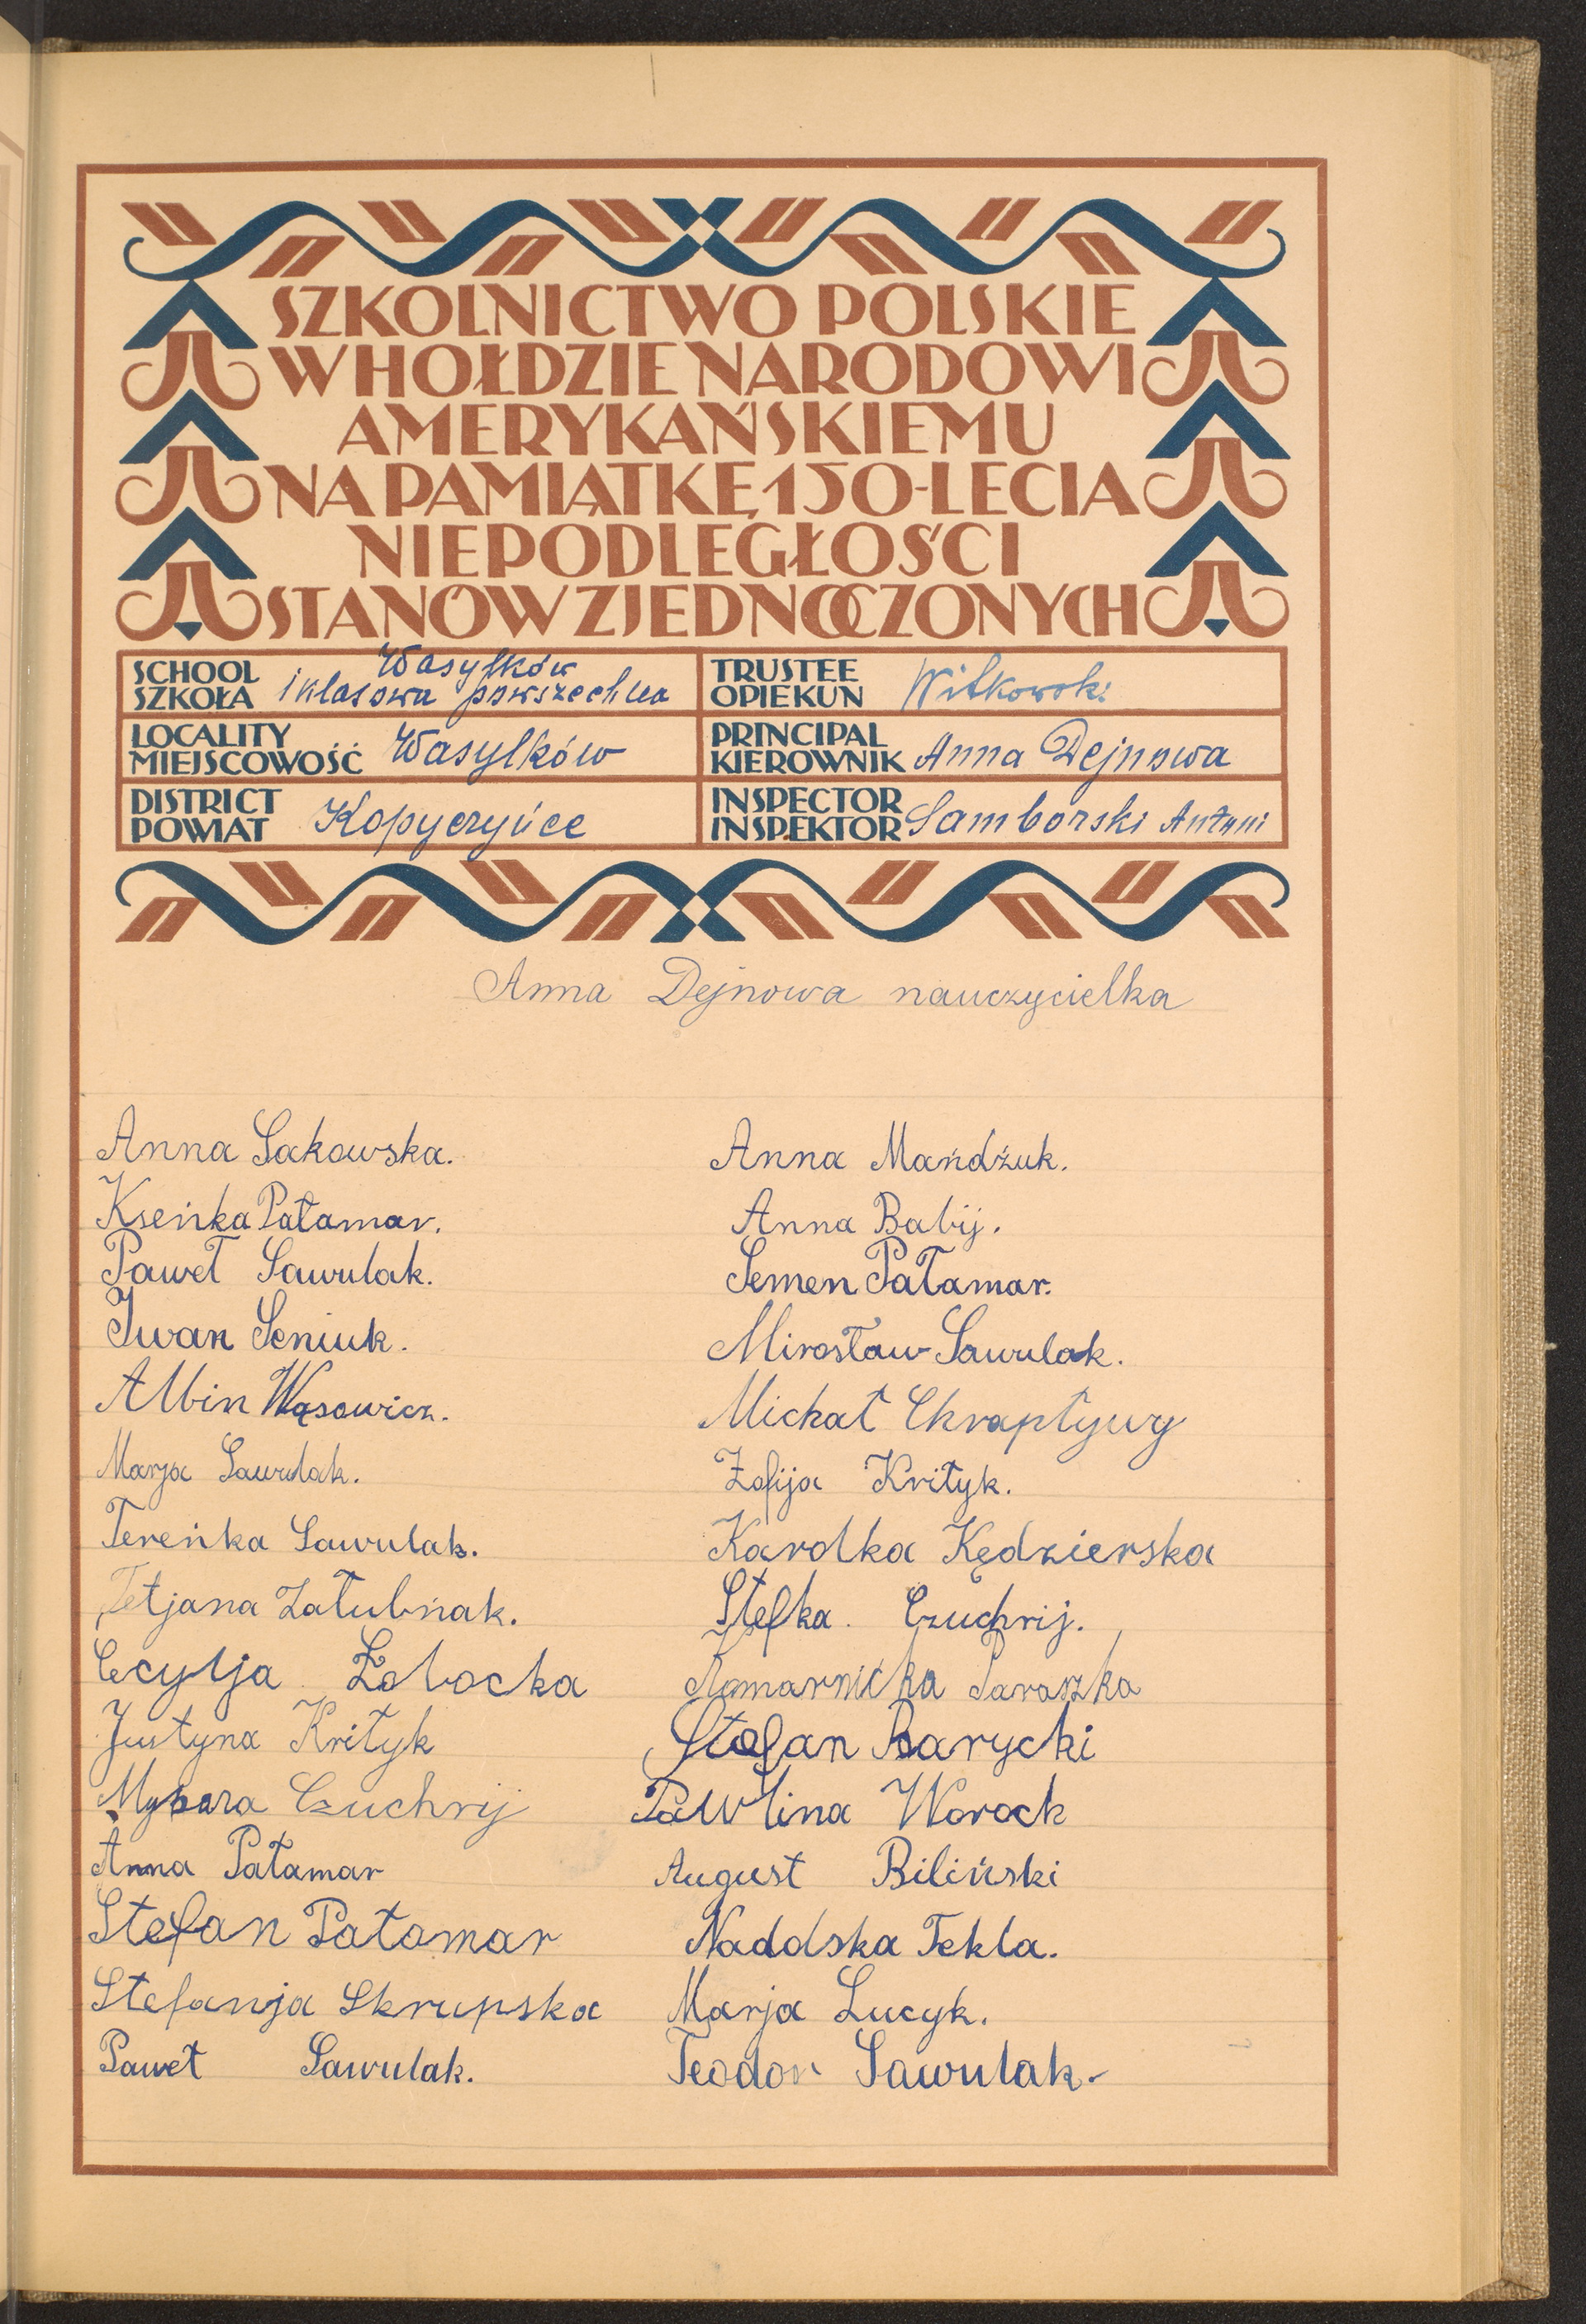 SZKOLNICTWO POLSKIE
W HOŁDZIE NARODOWI
AMERYKAŃSKIEMU
NA PAMIĄTKĘ 150-LECIA
NIEPODLEGŁOŚCI
STANÓW ZJEDNOCZONYCH
SCHOOL
SZKOŁA
Wasylków
1 klasowa powszechna
TRUSTEE
OPIEKUN
Witkowski
LOCALITY
MIEJSCOWOŚĆ
Wasylków
PRINCIPAL
KIEROWNIK
Anna Dejnowa
DISTRICT
POWIAT
Kopyczyńce
INSPECTOR
INSPEKTOR
Samborski Antoni
Anna Dejnowa nauczycielka
Anna Sakowska.
Kseńka Pałamar.
Paweł Sawulak.
Iwan Seniuk.
Albin Wąsowicz.
Marja Sawulak.
Tereńka Sawulak.
Tetjana Załubńak.
Cecylja Żobocka
Justyna Krityk
Czuchrij
Anna Pałamar
Stefan Pałamar
Stefanja Skrupska
Paweł Sawulak.
Anna Mańdźuk.
Anna Babij.
Semen Pałamar.
Mirosław Sawulak.
Michał Chrapływy
Zofija Krityk.
Karolka Kędzierska
Stefka Czuchrij.
Komarnićka Paraszka
Stefan Barycki
Pawlina Worock
August Biliński
Naddska Tekla.
Marja Lucyk.
Teodor Sawulak.